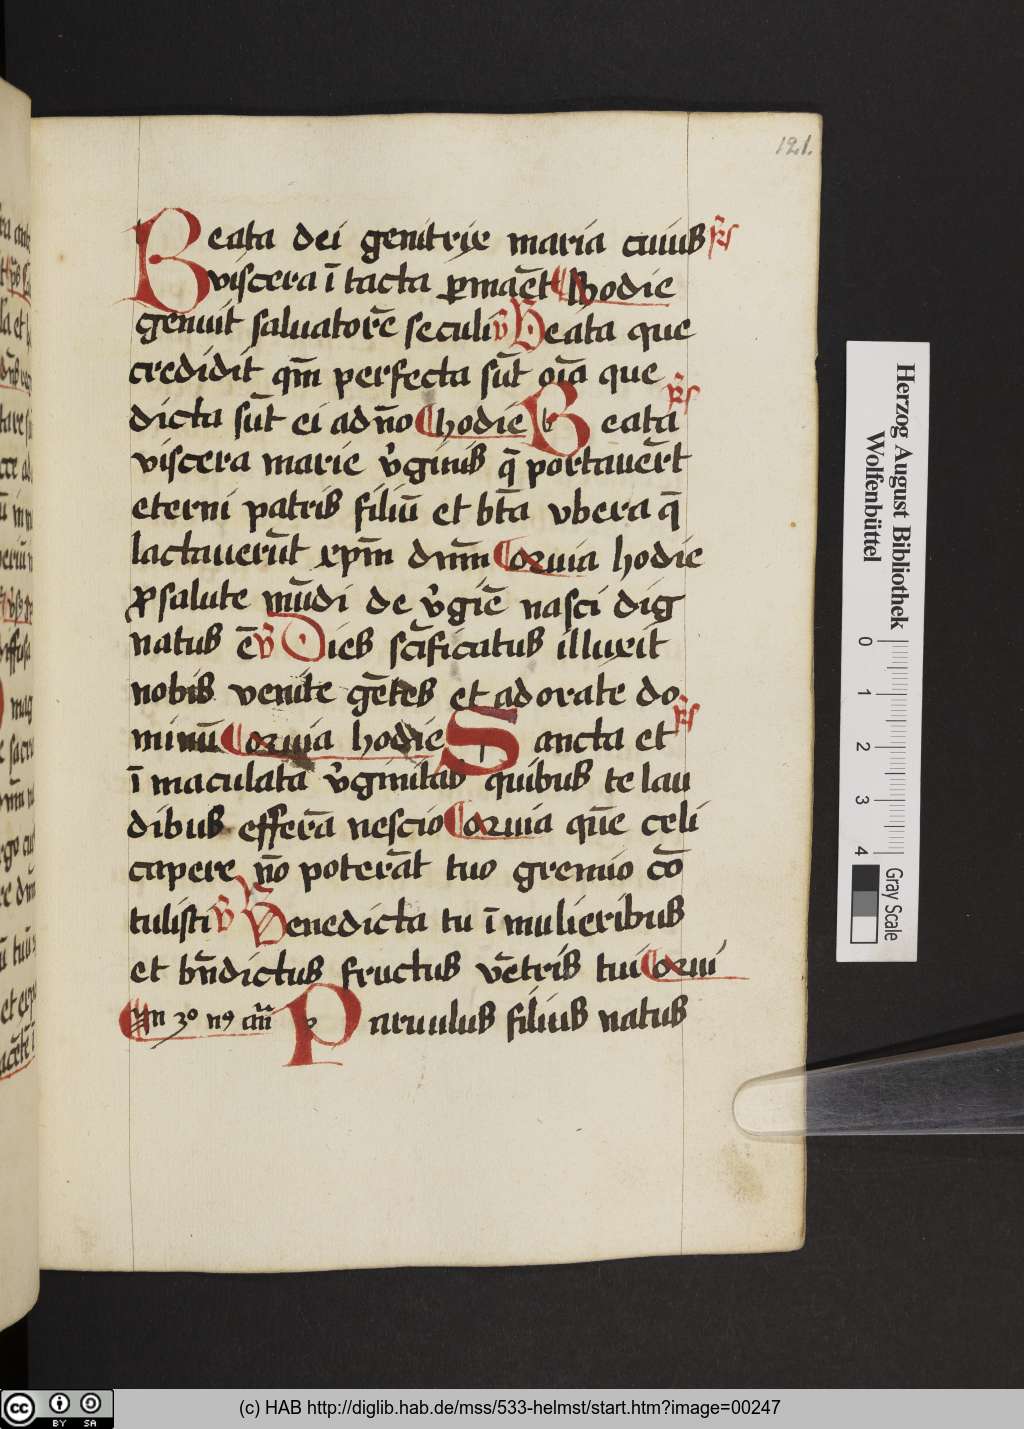 121.
Beata dei genitrix maria cuius
viscera ītacta ꝑmaēt Hodie
genuit saluatorē seculi Beata que
credidit qm̄ perfecta sūt oīa que
dicta sūt ei ad n̄o hodie Beata
viscera marie v̄ginis q̄ portauer̄t
eterni patris filiū et bt̄a vbera q̄
lactauerūt xpm̄ dnm̄ Qui hodie
ꝓ salute mūdi de v̄gīe nasci dig
natus ē Dies sc̄ificatus illuxit
nobis venite gētes et adorate do
minū Quia hodie Sancta et
ī maculata v̄ginitas quibus te lau
dibus efferā nescio Quia quē celi
capere n̄o poterāt tuo gremio cō
tulisti Benedicta tu ī mulieribus
et bn̄dictus fructus vētris tui Qui
Paruulus filius natus
Herzog August Bibliothek
Wolfenbüttel
0 1 2 3 4
Gray Scale
cc BY SA
(c) HAB http://diglib.hab.de/mss/533-helmst/start.htm?image=00247